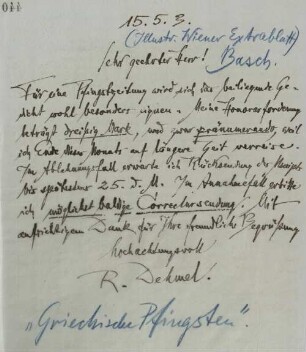 044
15.5.3.
(Illustr. Wiener Extrablatt)
Sehr geehrter Herr! Basch.
Für eine Pfingstzeitung wird sich das beiliegende Ge-
dicht wohl besonders eignen. Meine Honorarforderung
beträgt dreißig Mark, und zwar pränumerando, weil
ich Ende dieses Monats auf längere Zeit verreise.
Im Ablehnungsfall erwarte ich Rücksendung des Manuscr.
bis spätestens 25. d. M. Im Annahmefall erbitte
ich möglichst baldige Correctursendung. Mit
aufrichtigem Dank für Ihre freundliche Begrüßung
hochachtungsvoll
R. Dehmel.
„Griechische Pfingsten".